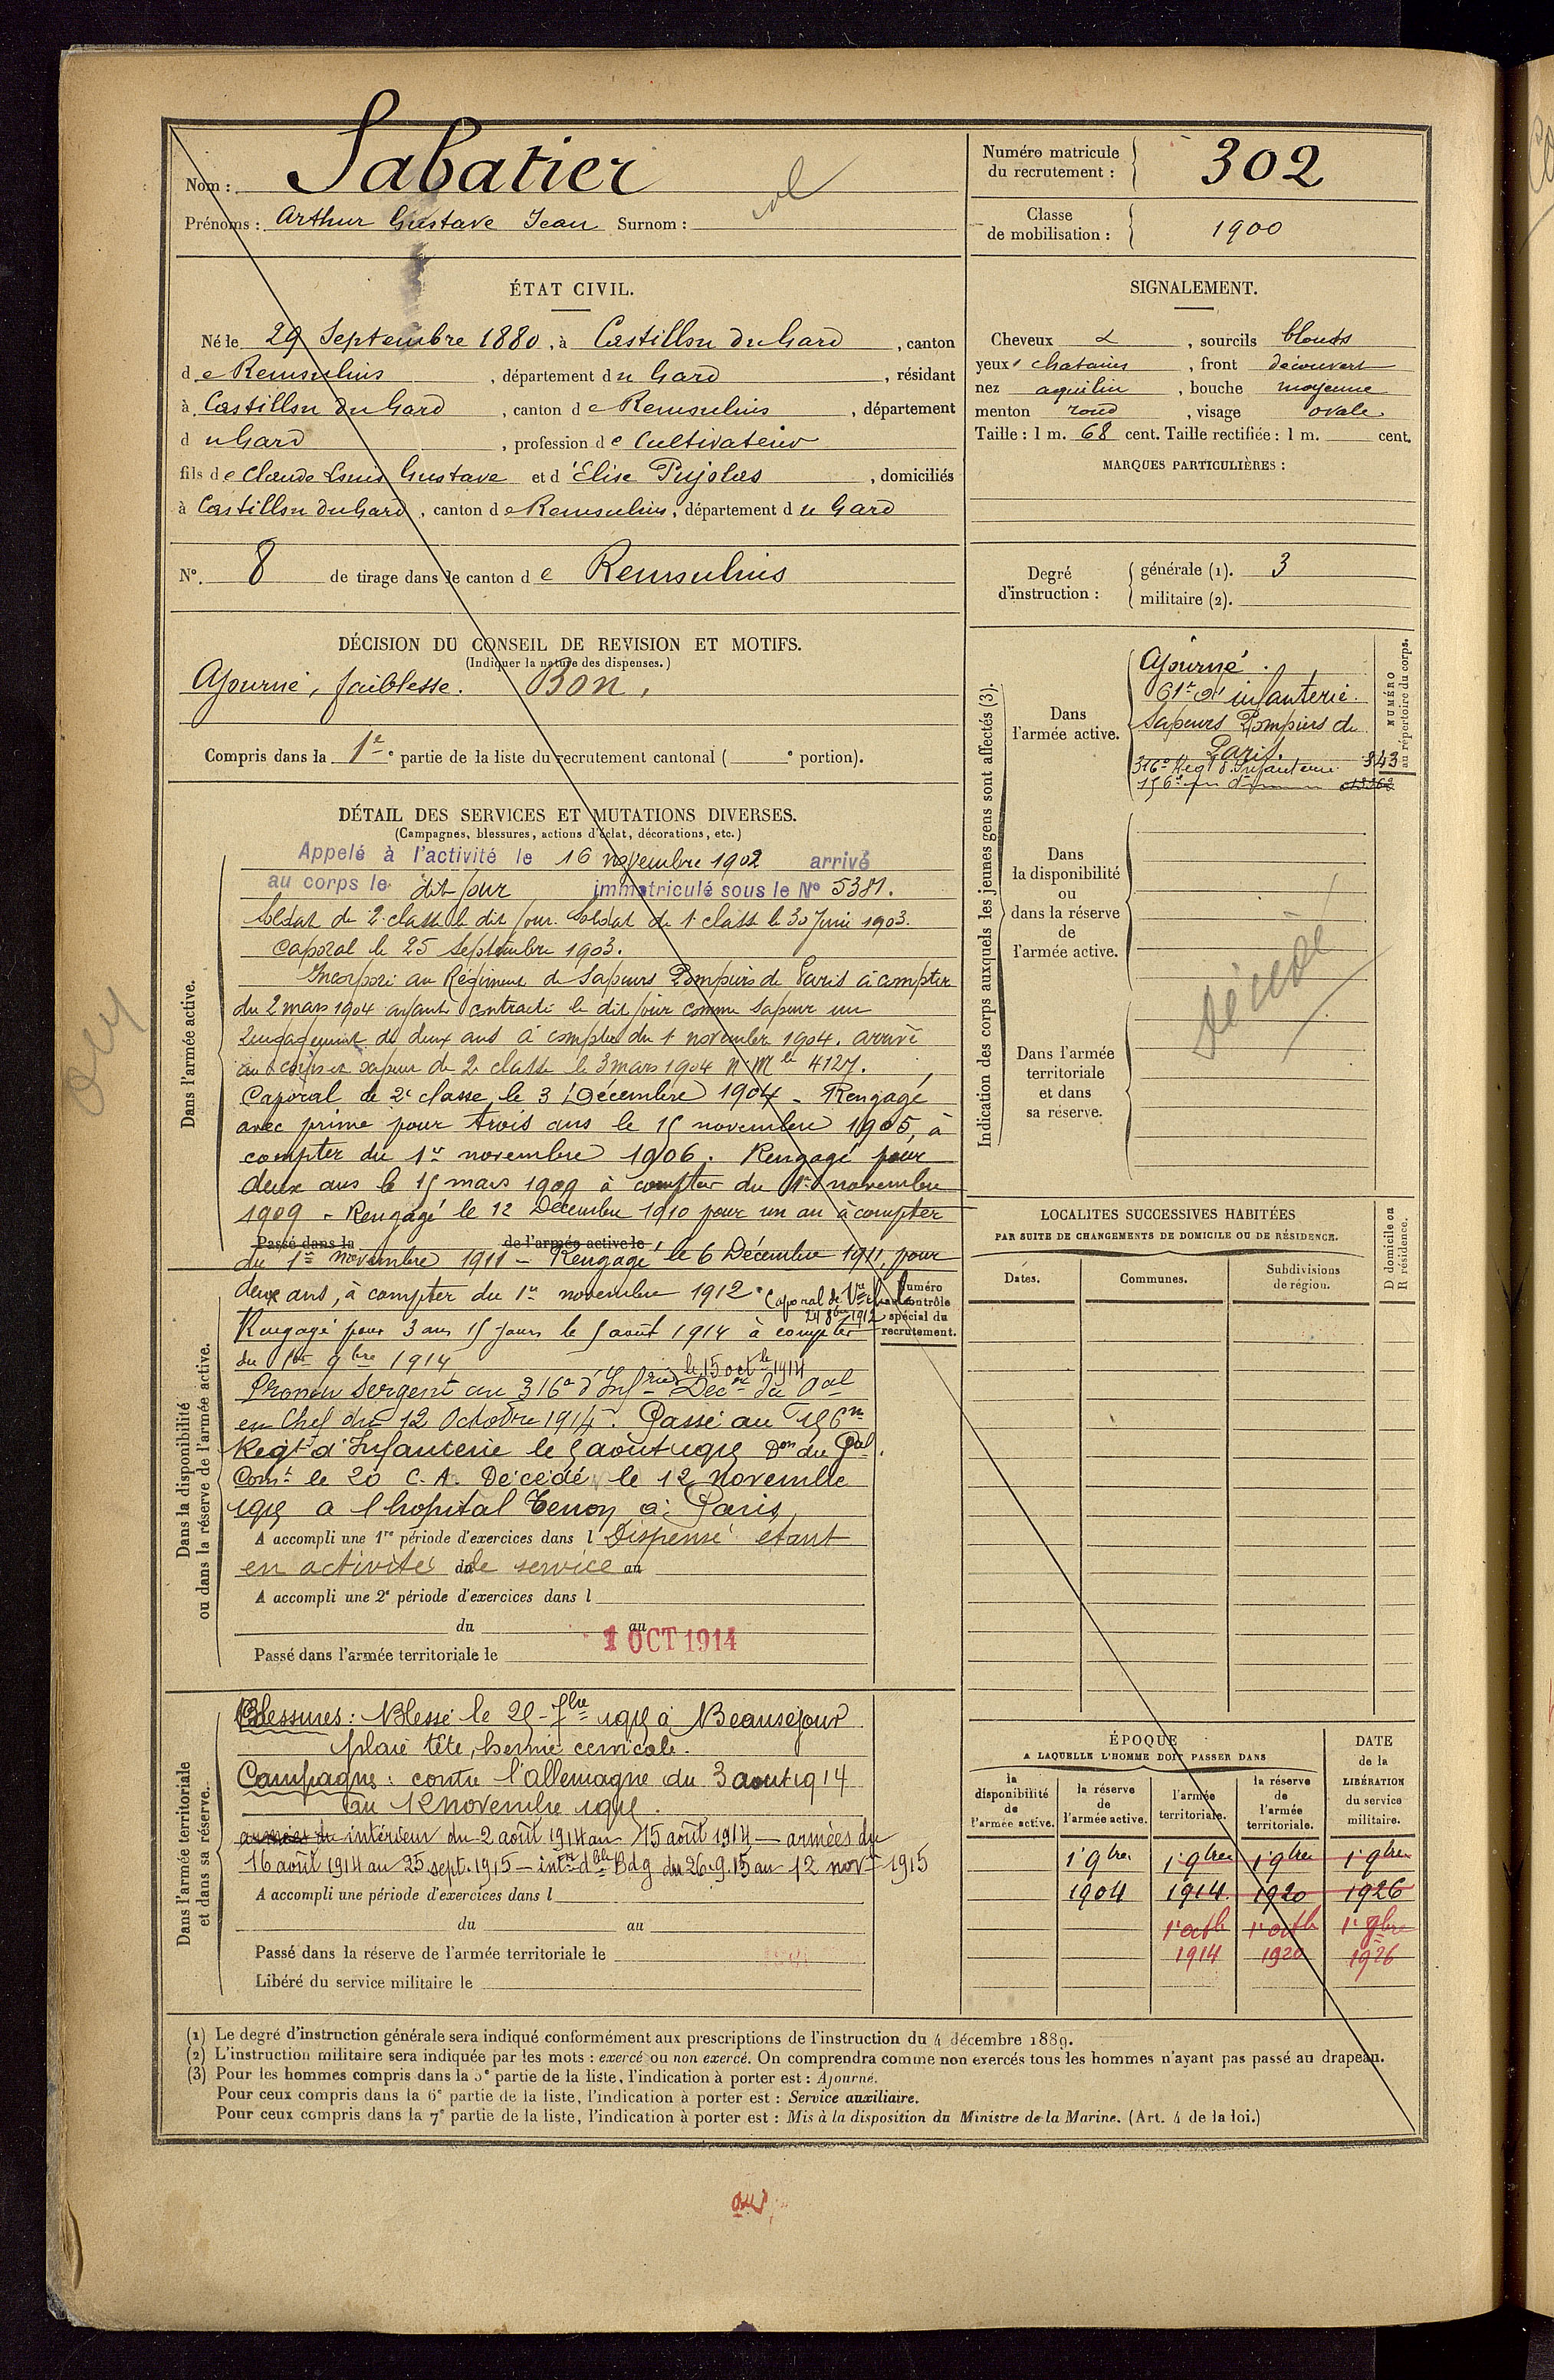 Nom : Sabatier
Prénoms : Arthur Gustave Jean Surnom :
Numéro matricule du recrutement : 302
Classe de mobilisation : 1900
ÉTAT CIVIL.
Né le 29 Septembre 1880, à Castillon du Gard, canton
de Remoulins, département du Gard, résidant
à Castillon du Gard, canton de Remoulins, département
du Gard, profession de Cultivateur
fils de Claude Louis Gustave et d'Elise Pujolas, domiciliés
à Castillon du Gard, canton de Remoulins, département du Gard
N°. 8 de tirage dans le canton de Remoulins
SIGNALEMENT.
Cheveux &, sourcils blonds
yeux chatains, front découvert
nez aquilin, bouche moyenne
menton rond, visage ovale
Taille : 1 m. 68 cent. Taille rectifiée : 1 m. cent.
MARQUES PARTICULIÈRES :
Degré d'instruction : générale (1). 3
militaire (2).
DÉCISION DU CONSEIL DE REVISION ET MOTIFS.
(Indiquer la nature des dispenses.)
Ajourné, faiblesse. Bon,
Compris dans la 1re e partie de la liste du recrutement cantonal ( e portion).
DÉTAIL DES SERVICES ET MUTATIONS DIVERSES.
(Campagnes, blessures, actions d'éclat, décorations, etc.)
Dans l'armée active.
Appelé à l'activité le 16 novembre 1902 arrivé
au corps le dit jour immatriculé sous le N° 5381.
Soldat de 2e classe le dit jour. Soldat de 1e classe le 30 Juin 1903.
Caporal le 25 Septembre 1903.
Incorporé au Régiment de Sapeurs Pompiers de Paris à compter
du 2 mars 1904 ayant contracté le dit jour comme sapeur un
rengagement de deux ans à compter du 1 novembre 1904. arrivé
au corps et sapeur de 2e classe le 3 mars 1904 N° Mle 4127.
Caporal de 2e classe le 3 Décembre 1904 - Rengagé
avec prime pour trois ans le 15 novembre 1905, à
compter du 1er novembre 1906. Rengagé pour
deux ans le 15 mars 1909 à compter du 1er novembre
1909 - Rengagé le 12 Décembre 1910 pour un an à compter
Passé dans la de l'armée active le
du 1er novembre 1911 - Rengagé le 6 Décembre 1911, pour
deux ans, à compter du 1er novembre 1912. Caporal de 1re classe
24 8bre 1912
Numéro au contrôle spécial du recrutement.
Dans la disponibilité ou dans la réserve de l'armée active.
Rengagé pour 3 ans 15 jours le 5 août 1914 à compter
du 1er 9bre 1914
le 15 octbre 1914
Promu Sergent au 316e d'Infrie Décon du Gal
en Chef du 12 Octobre 1914. Passé au 156me
Regt d'Infanterie le 5 août 1915 Don du Gal
Comt le 20 C.A. Décédé le 12 novembre
1915 a l'hopital Tenon à Paris
A accompli une 1re période d'exercices dans l Dispensé étant
en activité du de service au
A accompli une 2e période d'exercices dans l
du au
Passé dans l'armée territoriale le 1 OCT 1914
Dans l'armée territoriale et dans sa réserve.
Blessures : Blessé le 25-7bre 1915 à Beauséjour
plaie tête, hernie cervicale.
Campagne : contre l'allemagne du 3 aout 1914
au 12 novembre 1915.
armées du intérieur du 2 août 1914 au 15 août 1914 - armées du
16 août 1914 au 25 sept. 1915 - intr dble Bdg du 26.9.15 au 12 nov 1915
A accompli une période d'exercices dans l
du au
Passé dans la réserve de l'armée territoriale le
Libéré du service militaire le
Indication des corps auxquels les jeunes gens sont affectés (3).
NUMÉRO au répertoire du corps.
Dans l'armée active.
Ajourné.
61e d'infanterie.
Sapeurs Pompiers de
Paris.
316e Regt d'Infanterie 343
156e
Dans la disponibilité ou dans la réserve de l'armée active.
Décédé
Dans l'armée territoriale et dans sa réserve.
LOCALITÉS SUCCESSIVES HABITÉES
PAR SUITE DE CHANGEMENTS DE DOMICILE OU DE RÉSIDENCE.
Dates. Communes. Subdivisions de région. D domicile ou R résidence.
ÉPOQUE
A LAQUELLE L'HOMME DOIT PASSER DANS
DATE de la LIBÉRATION du service militaire.
la disponibilité de l'armée active. la réserve de l'armée active. l'armée territoriale. la réserve de l'armée territoriale.
1er 9bre 1er 9bre 1er 9bre 1er 9bre
1904 1914 1920 1926
1er octb 1er octb 1er 9bre
1914 1920 1926
(1) Le degré d'instruction générale sera indiqué conformément aux prescriptions de l'instruction du 4 décembre 1889.
(2) L'instruction militaire sera indiquée par les mots : exercé ou non exercé. On comprendra comme non exercés tous les hommes n'ayant pas passé au drapeau.
(3) Pour les hommes compris dans la 5e partie de la liste, l'indication à porter est : Ajourné.
Pour ceux compris dans la 6e partie de la liste, l'indication à porter est : Service auxiliaire.
Pour ceux compris dans la 7e partie de la liste, l'indication à porter est : Mis à la disposition du Ministre de la Marine. (Art. 4 de la loi.)